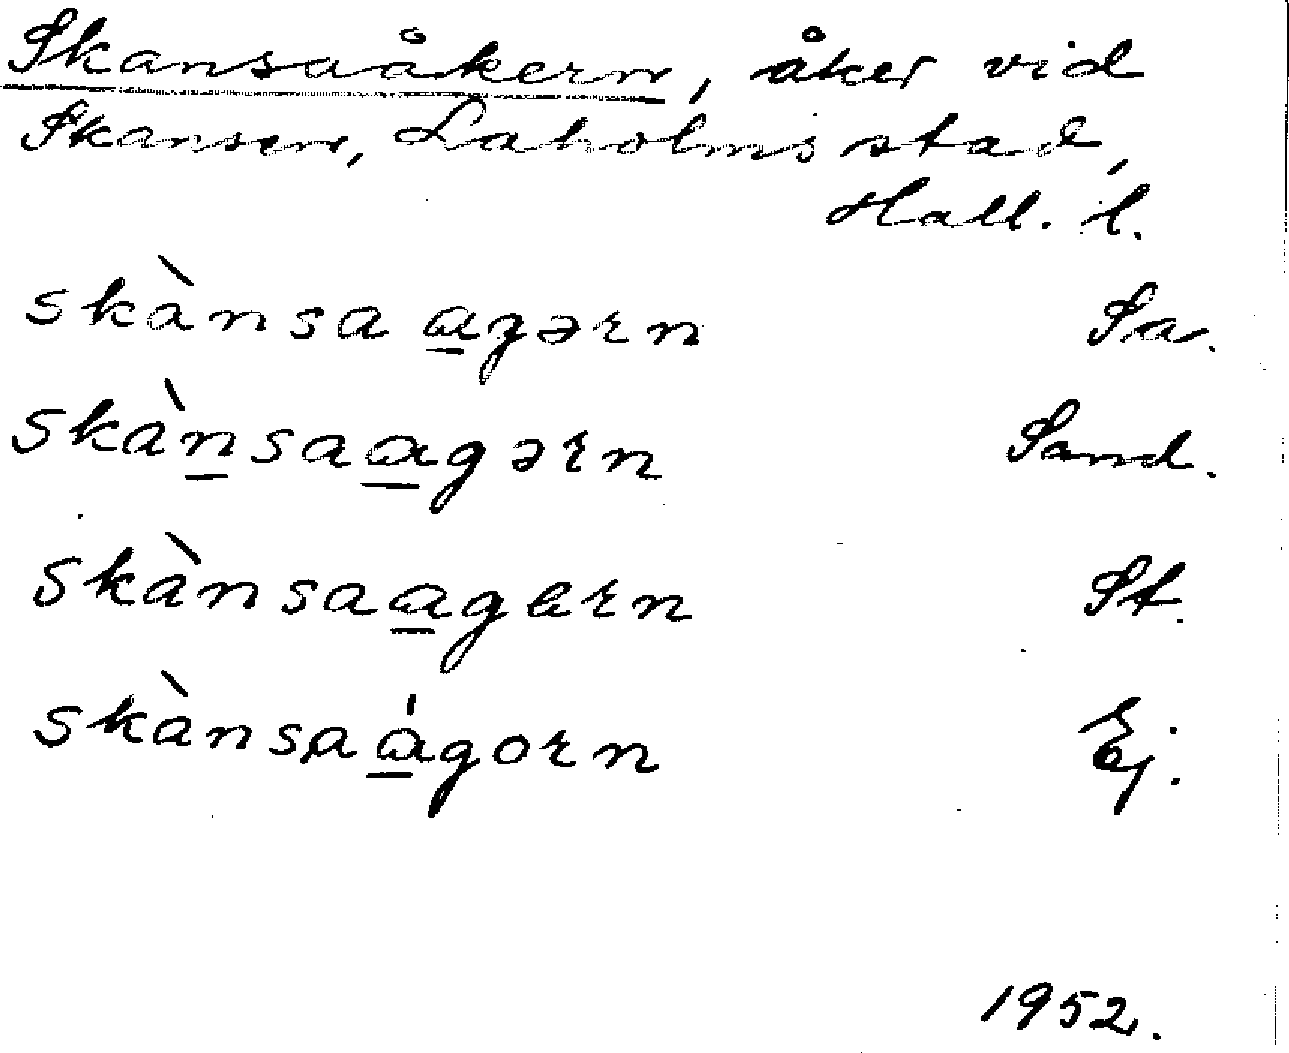 Skansaåkern, åker vid
Skansen, Laholms stad,
Hall. l.
skànsaagərn Sa.
skànsaagərn Sand.
skànsaagɐrn St.
skànsaágorn Ej.
1952.